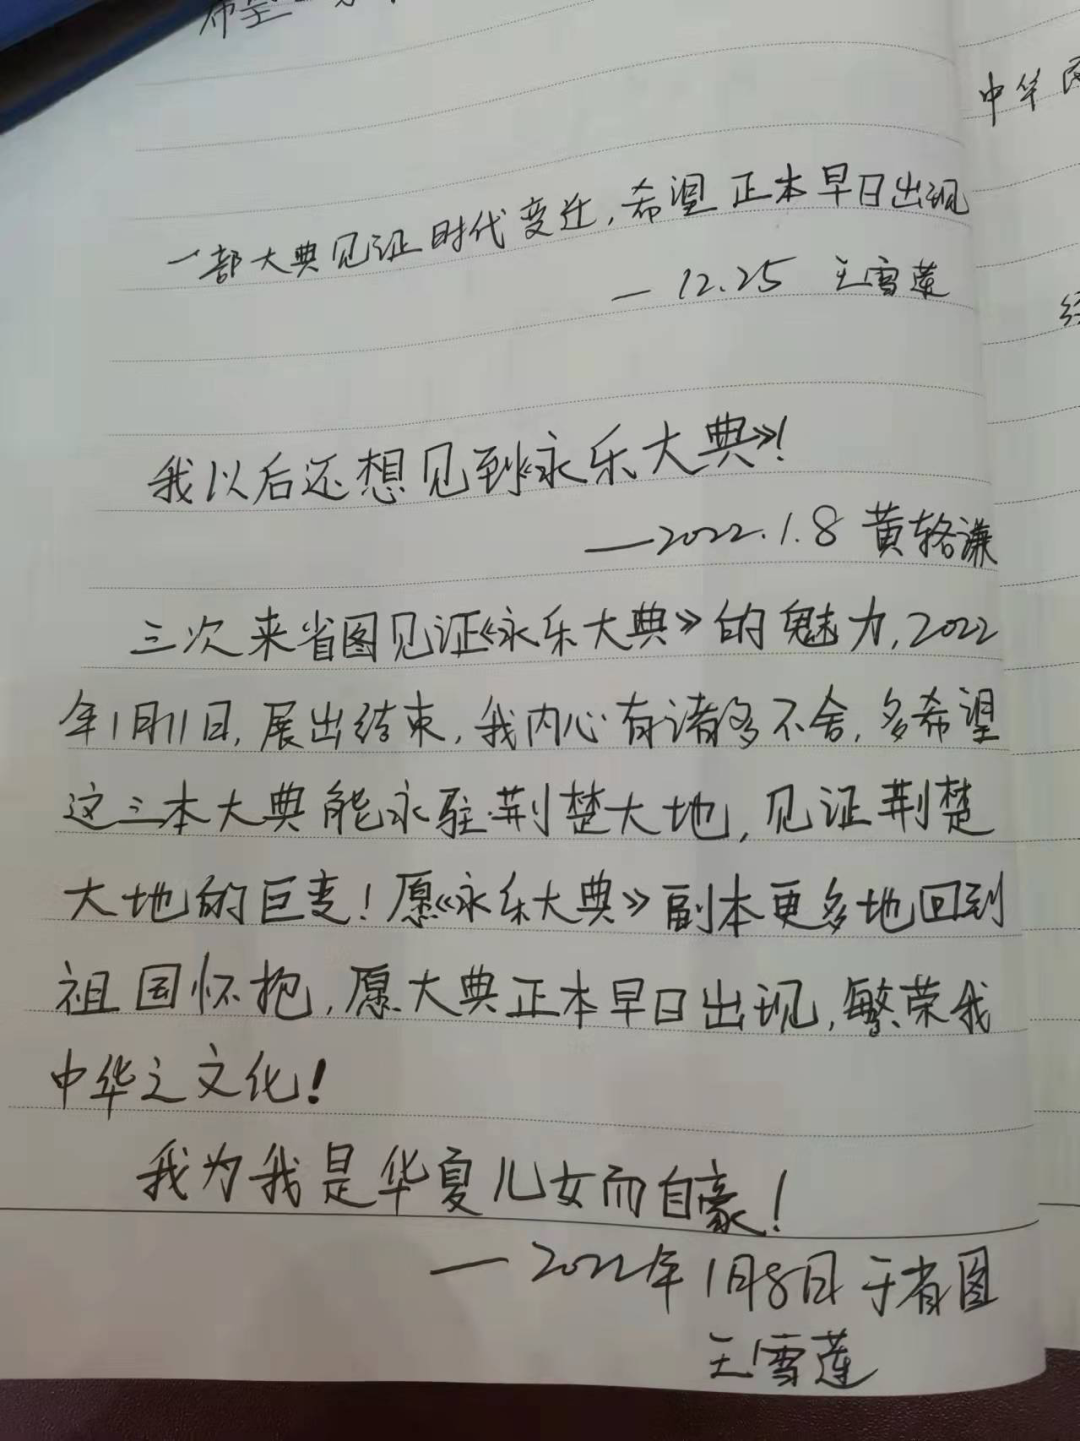 希望
中华
一部大典见证时代变迁,希望正本早日出现
— 12.25 王雪莲
我以后还想见到《永乐大典》!
—2022.1.8 黄轺谦
三次来省图见证《永乐大典》的魅力,2022
年1月11日,展出结束,我内心有诸多不舍,多希望
这三本大典能永驻荆楚大地,见证荆楚
大地的巨变!愿《永乐大典》副本更多地回到
祖国怀抱,愿大典正本早日出现,繁荣我
中华之文化!
我为我是华夏儿女而自豪!
—2022年1月8日于省图
王雪莲